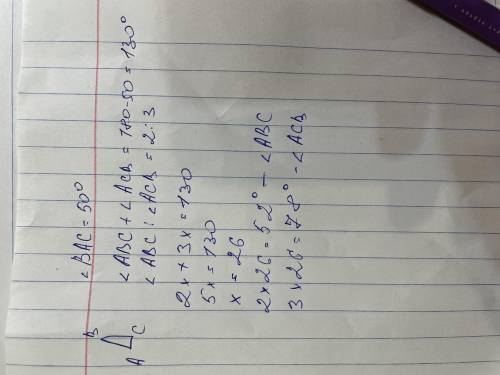 B
A C
∠BAC = 50°
∠ABC + ∠ACB = 180-50 = 130°
∠ABC : ∠ACB = 2:3
2x + 3x = 130
5x = 130
x = 26
2×26 = 52° - ∠ABC
3×26 = 78° - ∠ACB